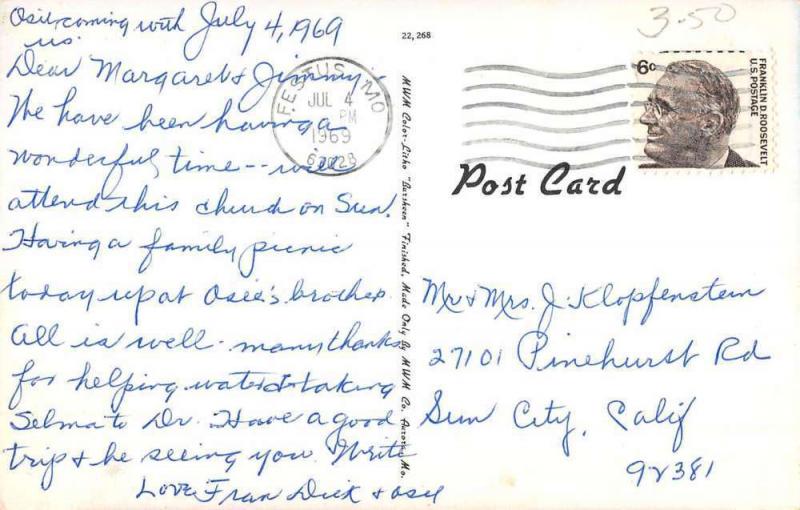 Osie coming with
us.
July 4, 1969
Dear Margaret & Jimmy -
We have been having a
wonderful time -- will
attend this church on Sun.
Having a family picnic
today up at Osie's brother.
All is well - many thanks
for helping water & taking
Selma to Dr. Have a good
trip & be seeing you. Write
Love, Fran Dick & Osie
22, 268
MWM Color-Litho "Bursheen" Finished. Made Only By MWM Co. Aurora, Mo.
FESTUS, MO
JUL 4
PM
1969
63028
3.50
6¢
FRANKLIN D. ROOSEVELT
U.S. POSTAGE
Post Card
Mr & Mrs. J. Klopfenstein
27101 Pinehurst Rd
Sun City, Calif
92381